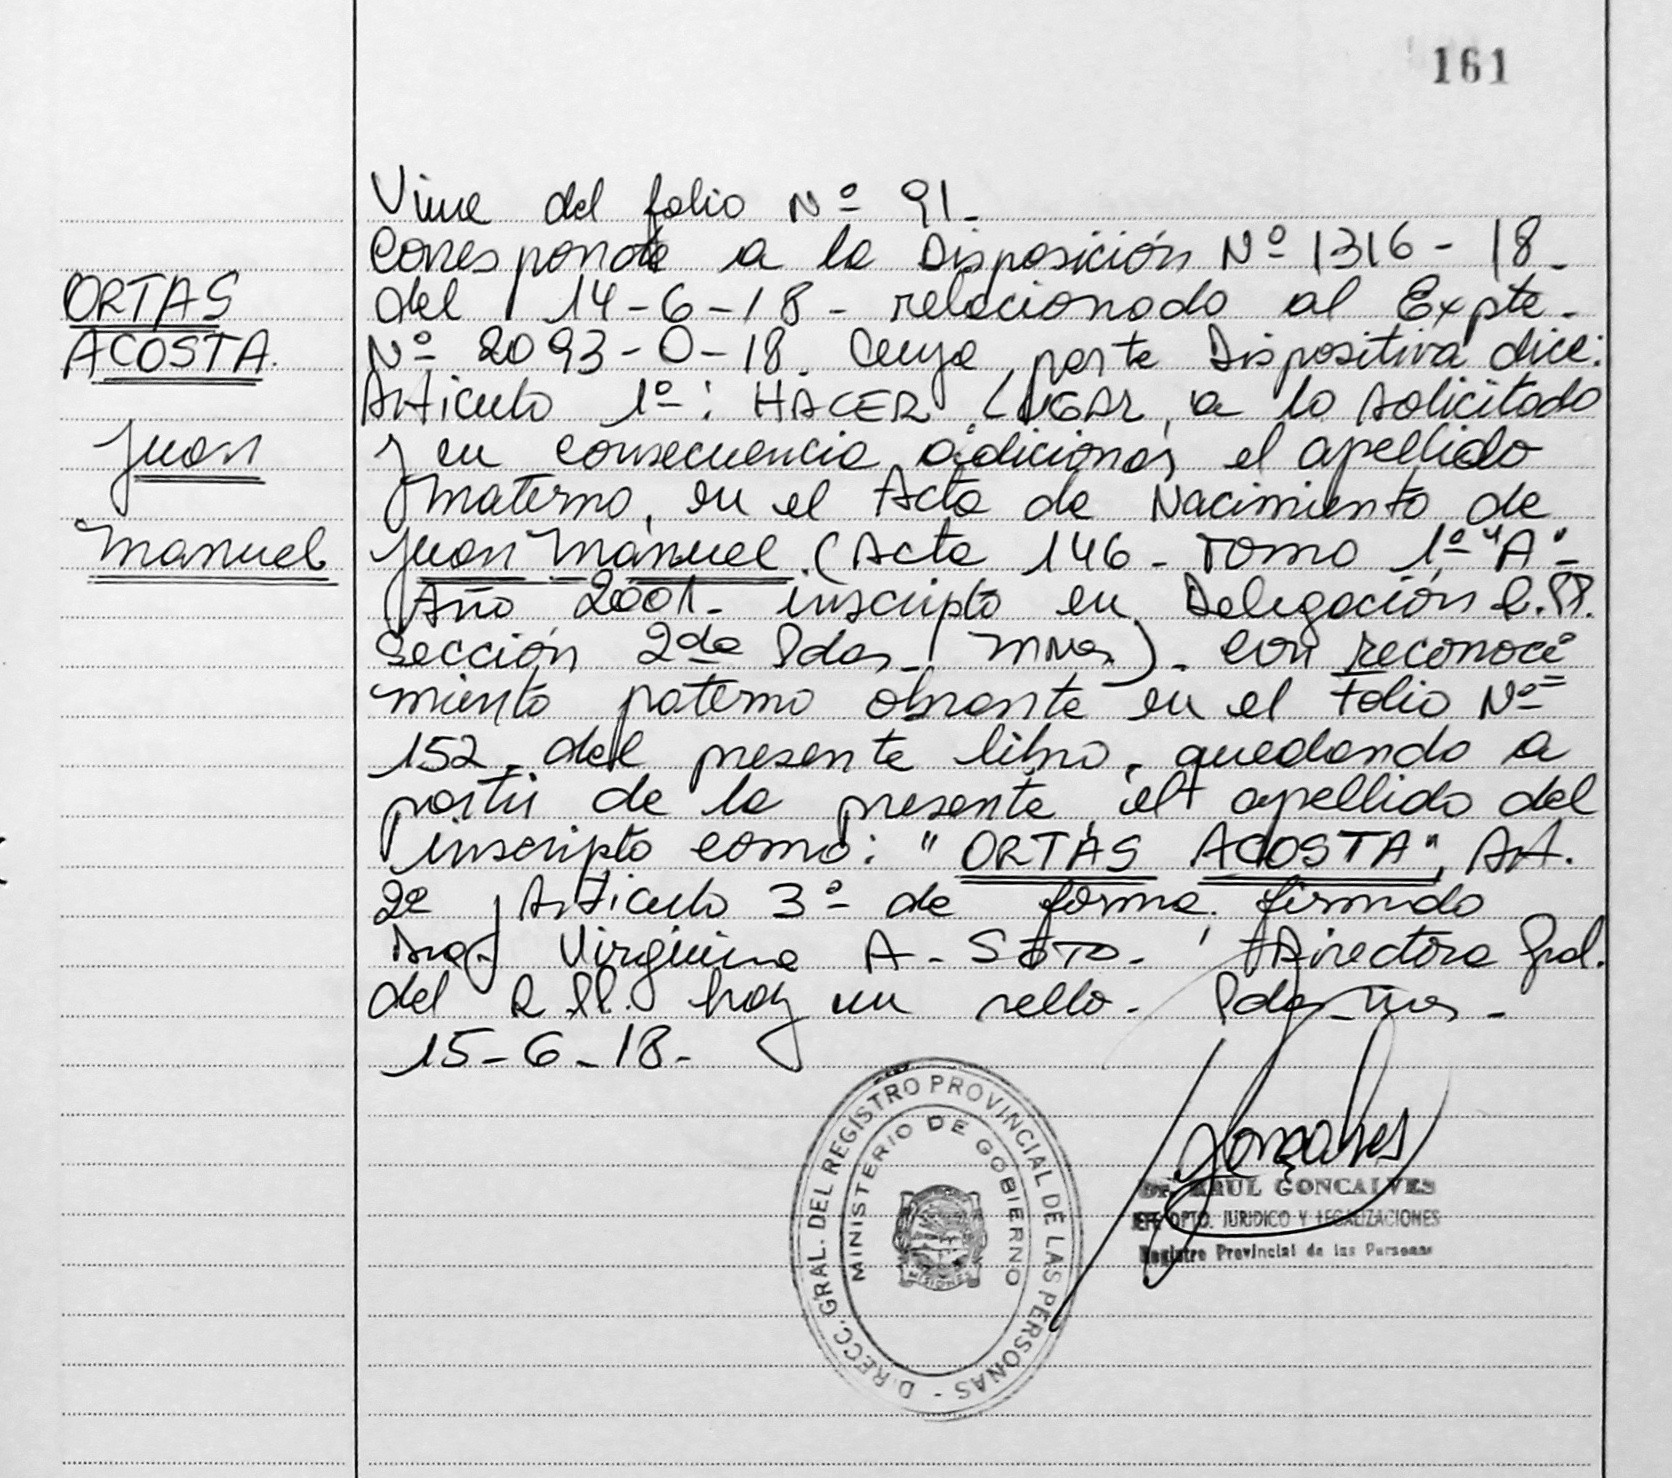 161
ORTAS
ACOSTA.
Juan
Manuel
Viene del folio Nº 91.
Corresponde a la Disposición Nº 1316-18.
del 14-6-18 - relacionado al Expte.
Nº 2093-O-18. Cuya parte Dispositiva dice:
Artículo 1º: HACER LUGAR, a lo solicitado
y en consecuencia adicionar el apellido
materno, en el Acta de Nacimiento de
Juan Manuel. (Acta 146 - Tomo 1º "A"-
Año 2001- inscripto en Delegación R.PP.
Sección 2da Pdas- Mnes). con reconoci
miento paterno obrante en el Folio Nº
152 del presente libro, quedando a
partir de la presente el apellido del
inscripto como: "ORTAS ACOSTA", Art.
2º y Artículo 3º de forma. firmado
Virginia A. SOTO. Directora Gral.
del R.PP. hay un sello. Pdas-Mnes-
15-6-18-
DIRECC. GRAL. DEL REGISTRO PROVINCIAL DE LAS PERSONAS -
MINISTERIO DE GOBIERNO
MISIONES
Goncalves
Dr. RAUL GONCALVES
JEFE DPTO. JURIDICO Y LEGALIZACIONES
Registro Provincial de las Personas